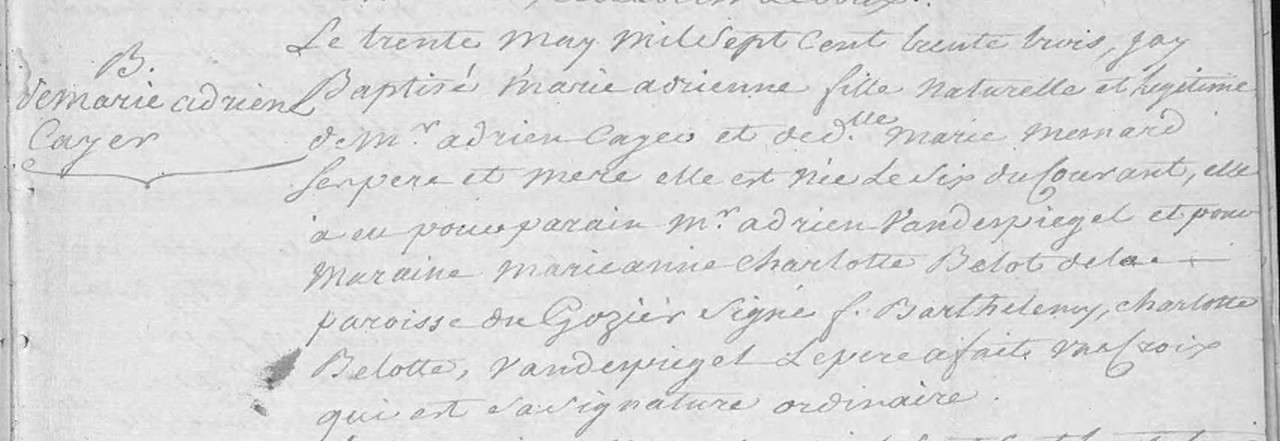 B.
de marie adrien
Cayer
Le trente May mil Sept Cent trente trois, jay
Baptisé Marie adrienne fille Naturelle et legitime
de M.r adrien Cayer et de d.lle Marie Mesnard
Ses pere et mere elle est Née Le Six du Courant, elle
a eu pour parain M.r adrien Vandespiegel et pour
Maraine Marie anne Charlotte Belot de la
paroisse du Gozier Signé f. Barthelemy, Charlotte
Belotte, Vandespiegel Le pere a fait Une Croix
qui est Sa Signature ordinaire.